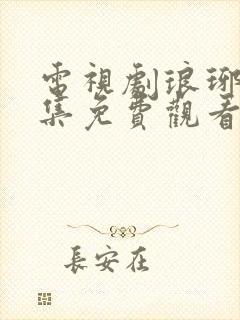 電視劇琅琊
集免費觀看
長安在